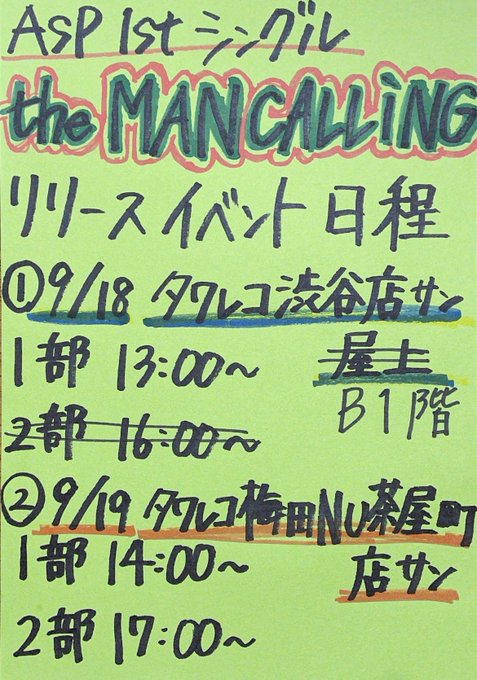 ASP 1st シングル
the MANCALLiNG
リリースイベント日程
①9/18 タワレコ渋谷店サン
1部 13:00〜 屋上
B1階
2部 16:00〜
②9/19 タワレコ梅田NU茶屋町
店サン
1部 14:00〜
2部 17:00〜